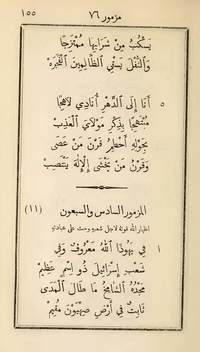 ١٥٥ مزمور ٧٦
يَسْكُبُ مِنْ شَرَابِهَا مُمْتَزِجَا
وَالثُّفْلُ يَسْقِي الظَّالِمِينَ الْفَجَرَهْ
٥ أَنَا إِلَى الدَّهْرِ أُنَادِي لَاهِجَا
مُبْتَهِجًا بِذِكْرِ مَوْلَايَ الْعَذِبْ
بِحَوْلِهِ أَحْطِمُ قَرْنَ مَنْ عَصَى
وَقَرْنُ مَنْ يَخْشَى الْإِلٰهَ يَنْتَصِبْ
المزمور السادس والسبعون (١١)
اظهار الله قوته لاجل شعبه وحث على عبادته
١ فِي يَهُوذَا اللهُ مَعْرُوفٌ وَفِي
شَعْبِ إِسْرَائِيلَ ذُو اِسْمٍ عَظِيمْ
مَجْدُهُ الشَّامِخُ مَا طَالَ الْمَدَى
ثَابِتٌ فِي أَرْضِ صِهْيَوْنَ مُقِيمْ